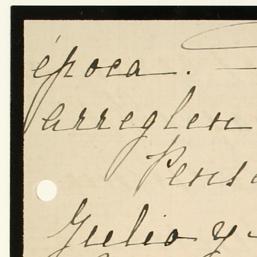 época.
arreglen
Pens
Julio y